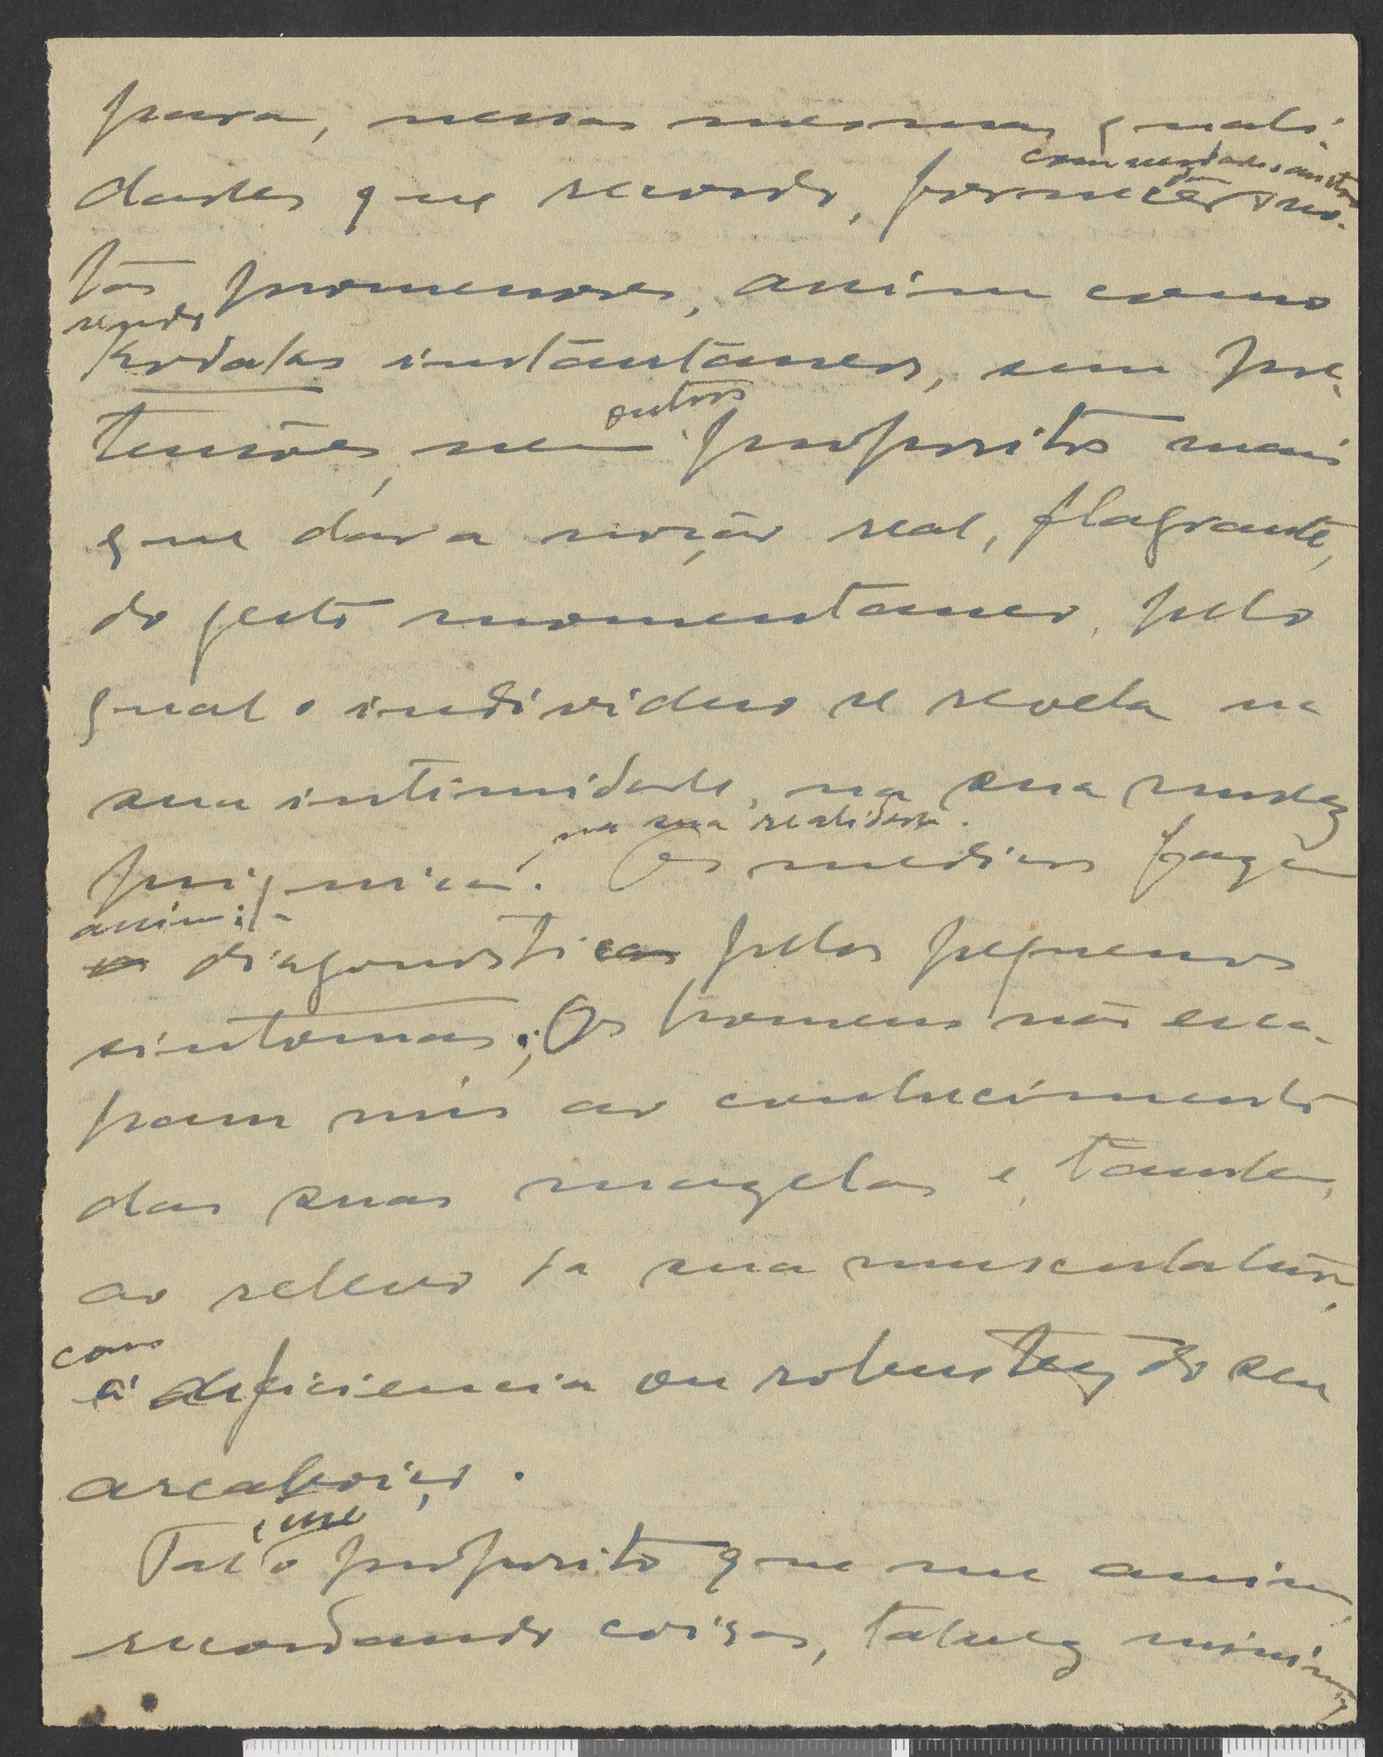 para, nessas mesmas quali-
com verdade
dades que recordo, fornecer
tos promenores, assim como
sendo
kodaks instantaneos, sem pre-
outros
tensões, nem propositos mais
que dar a noção real, flagrante,
do gesto momentaneo, pelo
qual o individuo se revela na
sua intimidade, na sua nudez
na sua realidade.
Os medicos fazem
assim
diagonostico pelos pequenos
sintomas; Os homens não esca-
pam nús ao conhecimento
das suas mazelas e,
ao relevo da sua musculatura,
como
á deficiencia ou robustez do seu
arcaboiço.
Tal o proposito que me anima,
recordando coisas, talvez minimas